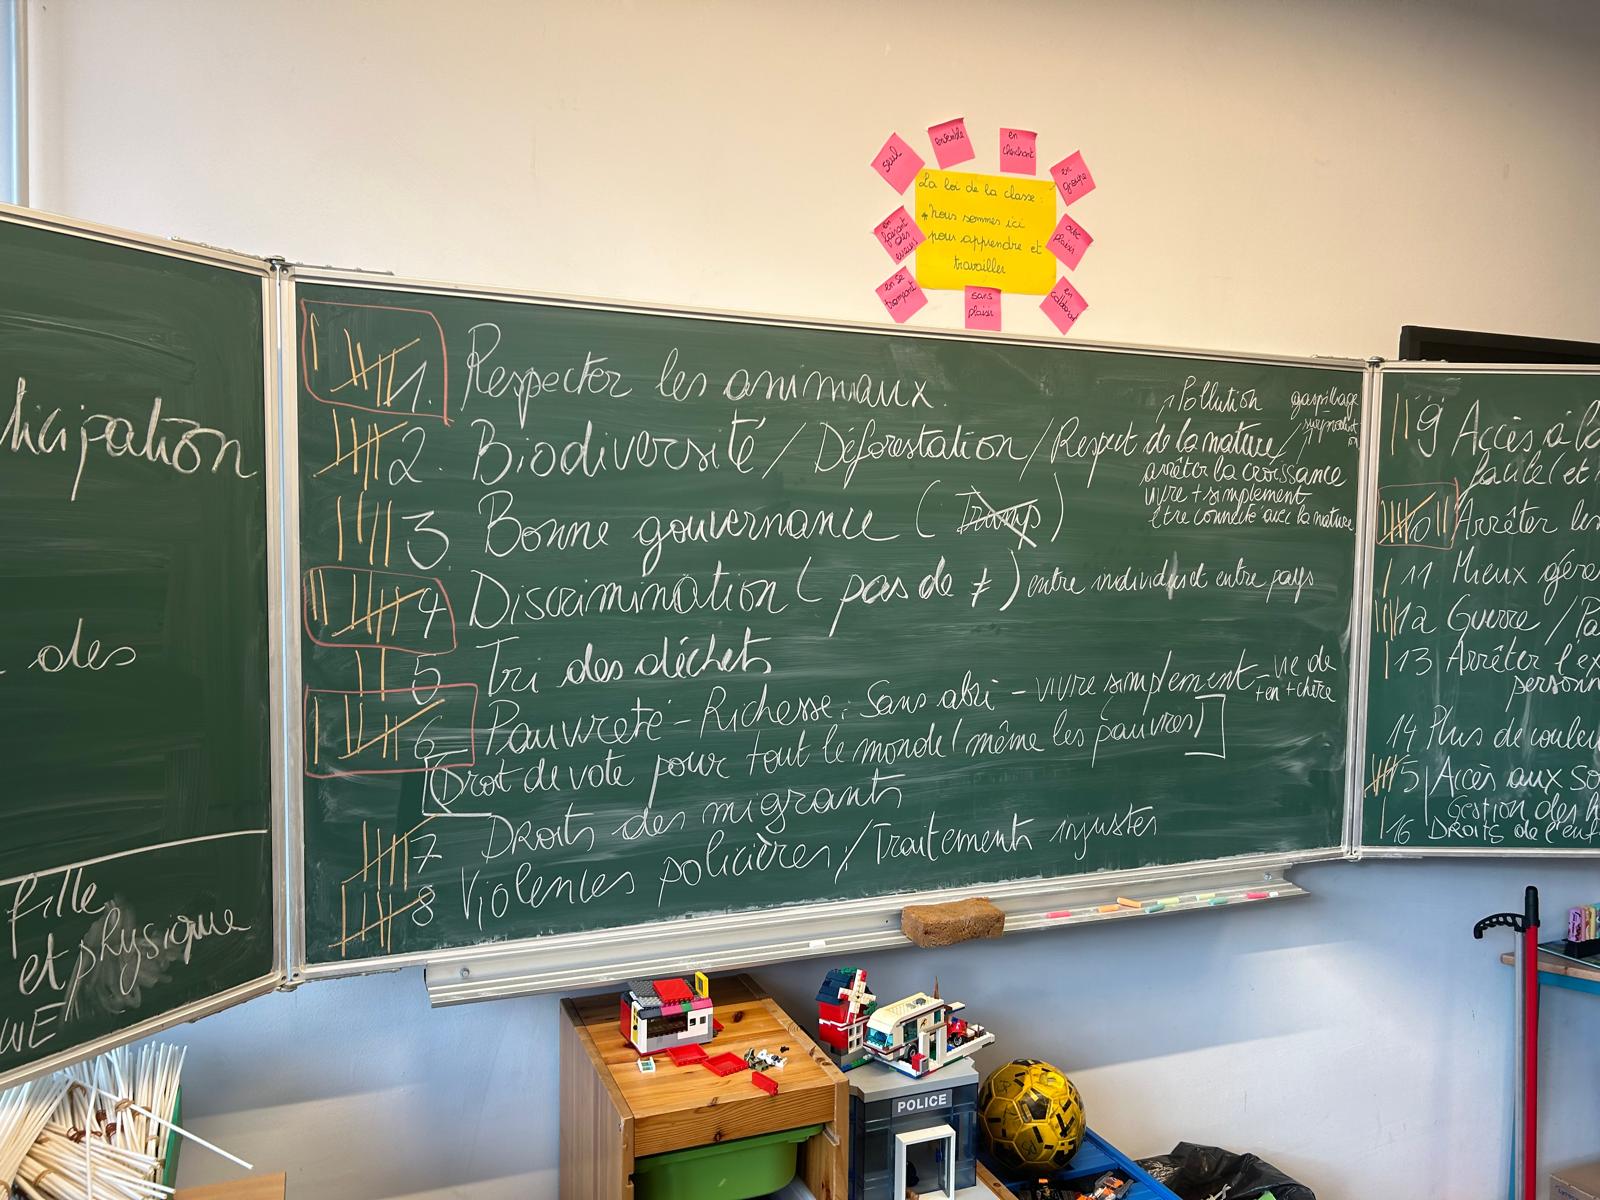 seul
ensemble
en cherchant
en groupe
en faisant des erreurs
avec plaisir
en se trompant
sans plaisir
en
La loi de la classe :
Nous sommes ici
pour apprendre et
travailler
ticipation
des
fille
et physique
WE
1. Respecter les animaux.
2. Biodiversité / Déforestation / Respect de la nature /
Pollution gaspillage
arrêter la croissance
vivre + simplement
être connecté avec la nature
3 Bonne gouvernance (Trump)
4 Discrimination (pas de ≠) entre individus et entre pays
5 Tri des déchets
6 Pauvreté - Richesse : Sans abri - vivre simplement - vie de + en + chère
[Droit de vote pour tout le monde (même les pauvres)]
7 Droits des migrants
8 Violences policières / Traitements injustes
9 Accès à l
(et
10 Arrêter les
11 Mieux gére
12 Guerre / Pa
13 Arrêter l'ex
personn
14 Plus de couleu
15 Accès aux so
Gestion des h
16 Droits de l'enf
POLICE